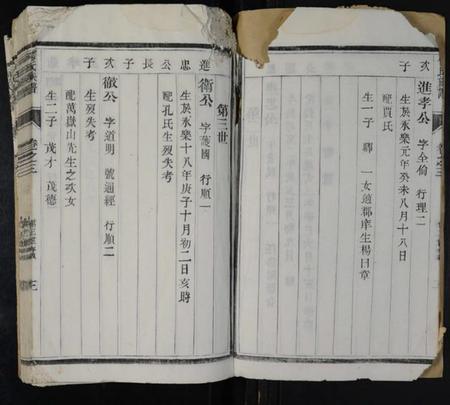 次子
進孝公 字全倫 行理二
生於永樂元年癸未八月十八日
配賈氏
生一子 驛 一女適郡庠生楊日章
卷之三
第三世
進忠公長子
衛公 字護國 行順一
生於永樂十八年庚子十月初二日亥時
配孔氏生歿失考
次子
徹公 字道明 號通經 行順二
生歿失考
配萬嶽山先生之次女
生二子 茂才 茂德
卷之三
三